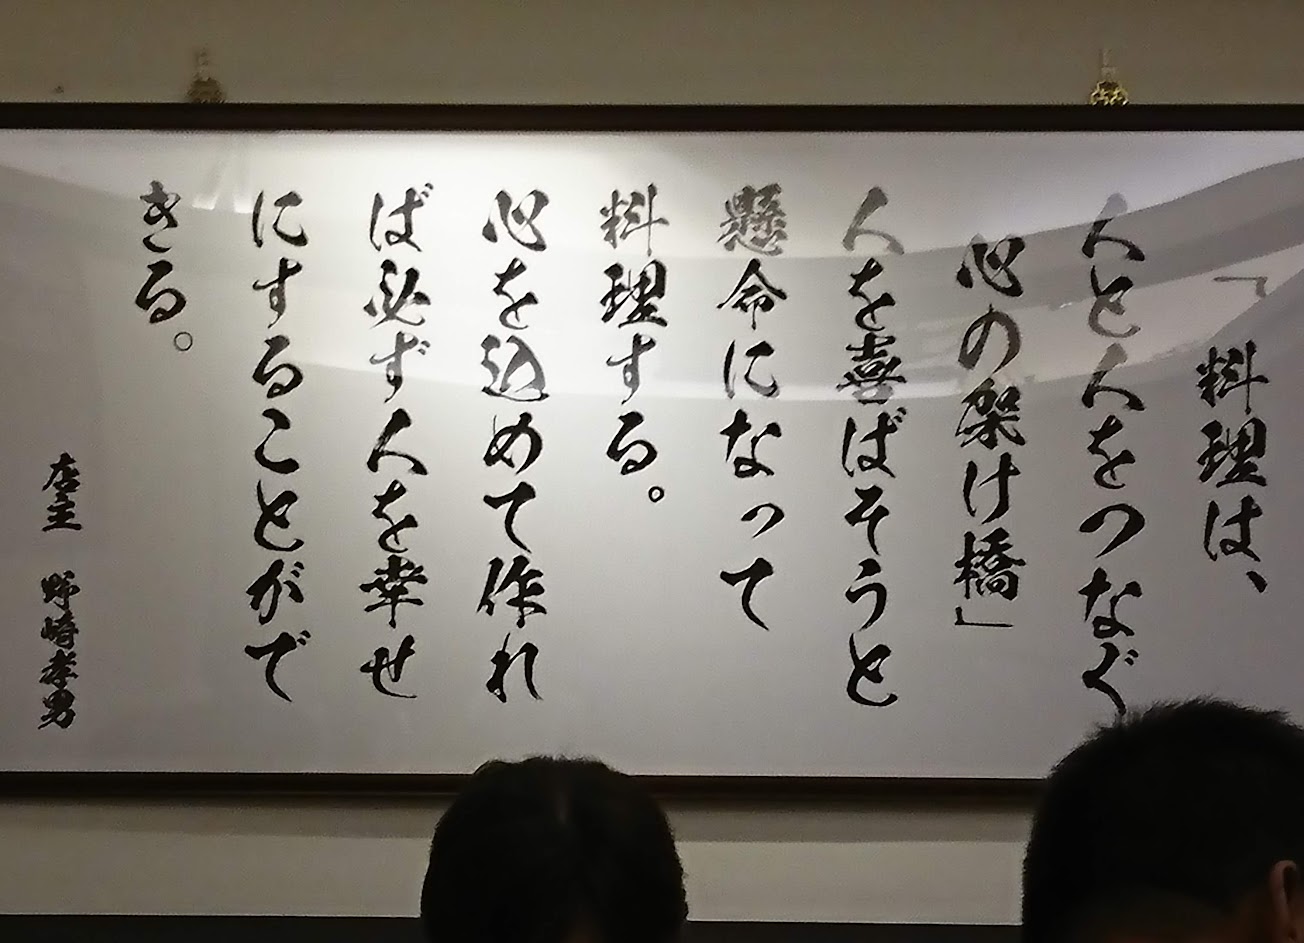 「料理は、
人と人をつなぐ
心の架け橋」
人を喜ばそうと
懸命になって
料理する。
心を込めて作れ
ば必ず人を幸せ
にすることがで
きる。
店主 野崎孝男